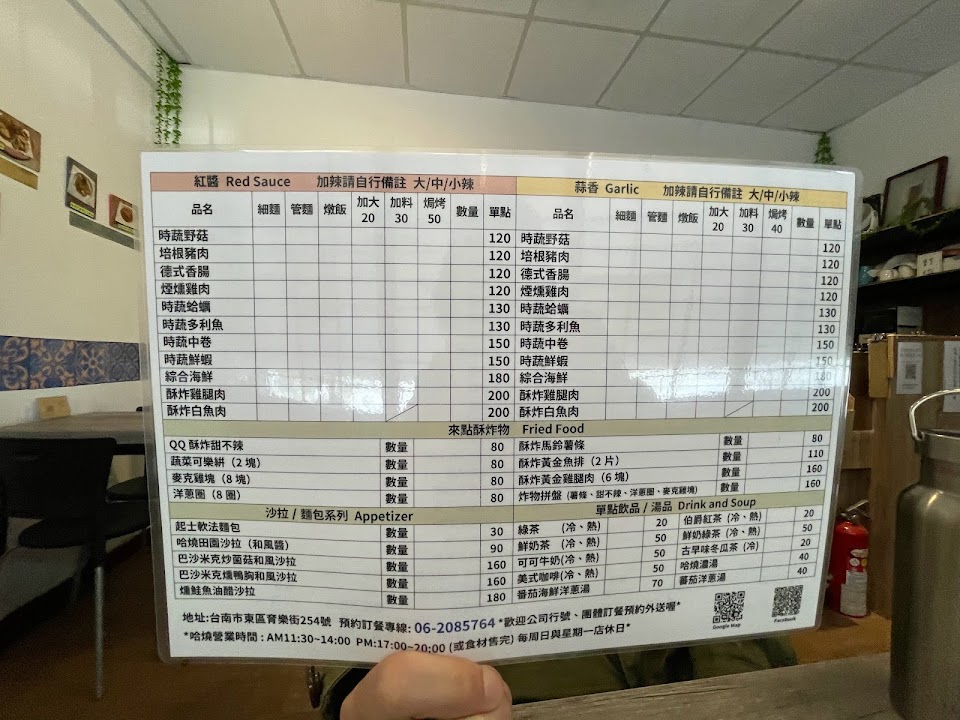 紅醬 Red Sauce 加辣請自行備註 大/中/小辣
品名 細麵 管麵 燉飯 加大20 加料30 焗烤50 數量 單點
時蔬野菇 120
培根豬肉 120
德式香腸 120
煙燻雞肉 120
時蔬蛤蠣 130
時蔬多利魚 130
時蔬中卷 150
時蔬鮮蝦 150
綜合海鮮 180
酥炸雞腿肉 200
酥炸白魚肉 200
蒜香 Garlic 加辣請自行備註 大/中/小辣
品名 細麵 管麵 燉飯 加大20 加料30 焗烤40 數量 單點
時蔬野菇 120
培根豬肉 120
德式香腸 120
煙燻雞肉 120
時蔬蛤蠣 130
時蔬多利魚 130
時蔬中卷 150
時蔬鮮蝦 150
綜合海鮮 180
酥炸雞腿肉 200
酥炸白魚肉 200
來點酥炸物 Fried Food
QQ 酥炸甜不辣 數量 80
蔬菜可樂絣（2 塊） 數量 80
麥克雞塊（8 塊） 數量 80
洋蔥圈（8 圈） 數量 80
酥炸馬鈴薯條 數量 80
酥炸黃金魚排（2 片） 數量 110
酥炸黃金雞腿肉（6 塊） 數量 160
炸物拼盤 (薯條、甜不辣、洋蔥圈、麥克雞塊) 數量 160
沙拉 / 麵包系列 Appetizer
起士軟法麵包 數量 30
哈燒田園沙拉（和風醬） 數量 90
巴沙米克炒菌菇和風沙拉 數量 160
巴沙米克燻鴨胸和風沙拉 數量 160
燻鮭魚油醋沙拉 數量 180
單點飲品 / 湯品 Drink and Soup
綠茶 (冷、熱) 20
鮮奶茶 (冷、熱) 50
可可牛奶(冷、熱) 50
美式咖啡(冷、熱) 50
番茄海鮮洋蔥湯 70
伯爵紅茶 (冷、熱) 20
鮮奶綠茶 (冷、熱) 50
古早味冬瓜茶 (冷) 20
哈燒濃湯 40
番茄洋蔥湯 40
地址:台南市東區育樂街254號 預約訂餐專線: 06-2085764 *歡迎公司行號、團體訂餐預約外送喔*
*哈燒營業時間 : AM11:30~14:00 PM:17:00~20:00 (或食材售完) 每周日與星期一店休日*
Google Map
Facebook